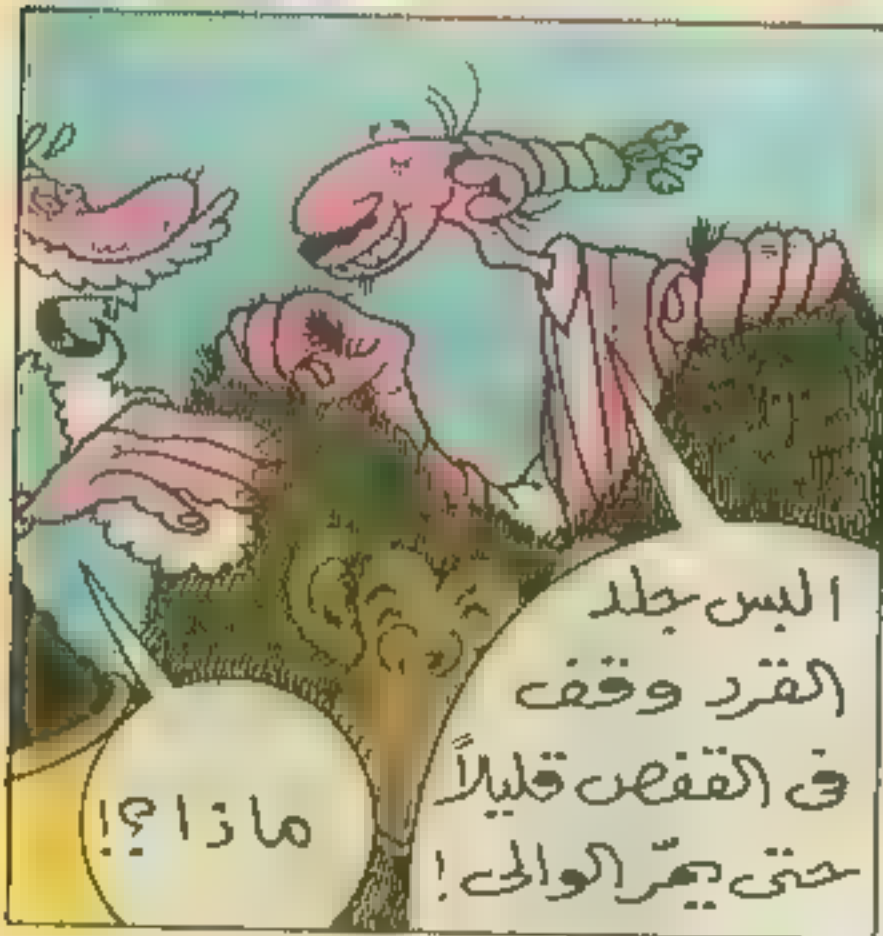 البس جلد
القرد وقف
فى القفص قليلاً
حتى يمرّ الوالى !
ماذا ؟!